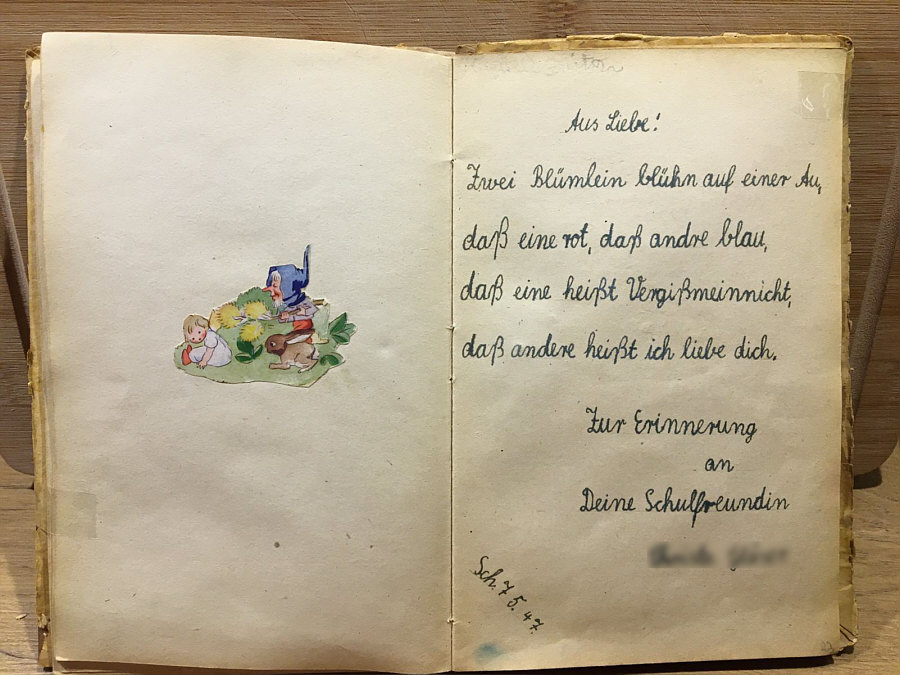 Aus Liebe!
Zwei Blümlein blühn auf einer Au,
daß eine rot, daß andre blau,
daß eine heißt Vergißmeinnicht,
daß andere heißt ich liebe dich.
Zur Erinnerung
an
Deine Schulfreundin
Sch. 7. 5. 47.